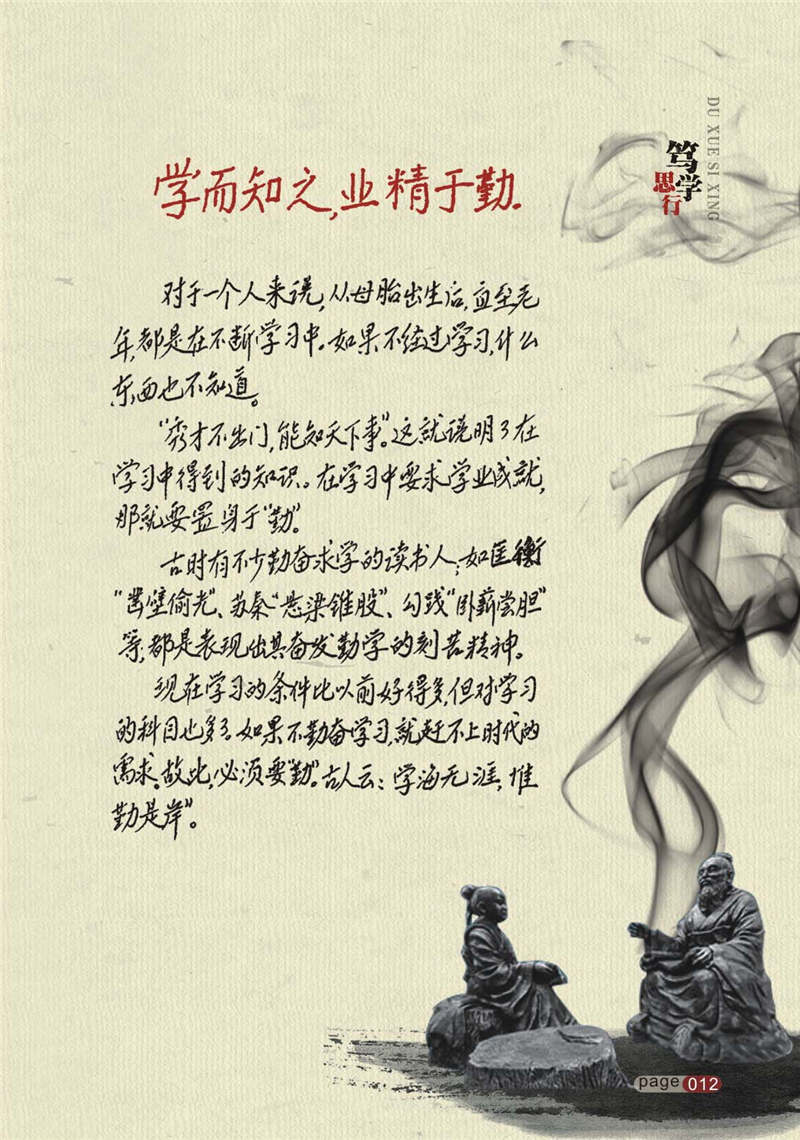 笃学
思行
DU XUE SI XING
学而知之,业精于勤.
对于一个人来说,从母胎出生后,直至老
年,都是在不断学习中。如果不经过学习,什么
东西也不知道。
“秀才不出门,能知天下事”。这就说明了在
学习中得到的知识。在学习中要求学业成就,
那就要置身于“勤”。
古时有不少勤奋求学的读书人;如匡衡
“凿壁偷光”、苏秦“悬梁锥股”、勾践“卧薪尝胆”
等,都是表现出其奋发勤学的刻苦精神。
现在学习的条件比以前好得多,但对学习
的科目也多了。如果不勤奋学习,就赶不上时代的
需求。故此,必须要“勤”。古人云:学海无涯,惟
勤是岸”。
page 012